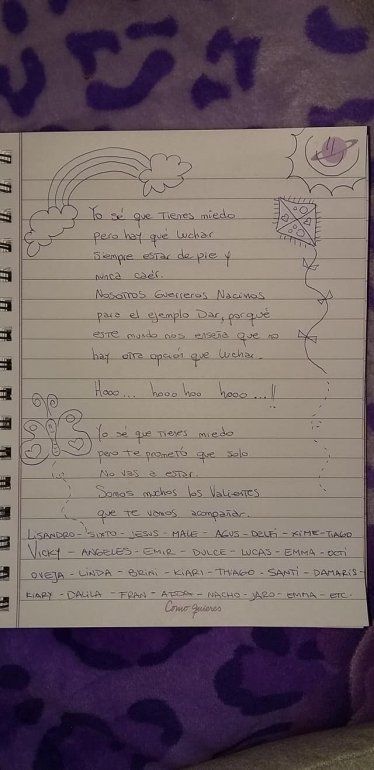 Yo sé que Tienes miedo
pero hay qué luchar
Siempre estar de pie y
nunca caer.
Nosotros Guerreros Nacimos
para el ejemplo Dar, porqué
este mundo nos enseña que no
hay otra opción que luchar.
Hooo... hooo hoo hooo...!!
Yo sé que Tienes miedo
pero te prometo que solo
No vas a estar.
Somos muchos los Valientes
que te vamos acompañar.
LISANDRO - SIXTO - JESUS - MALE - AGUS - DELFI - XIME - TIAGO
VICKY - ANGELES - EMIR - DULCE - LUCAS - EMMA - OCTI
OVEJA - LINDA - BRINI - KIARI - THIAGO - SANTI - DAMARIS -
KIARY - DALILA - FRAN - - NACHO - JARO - EMMA - ETC.
Como quieres